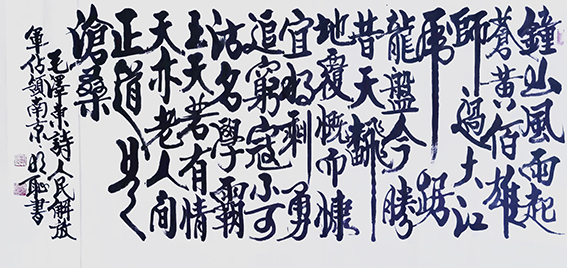 鐘山風雨起
蒼黃佰雄
師過大江
虎踞
龍盤今勝
昔天翻
地覆慨而慷
宜将剩勇
追窮寇不可
沽名學霸
王天若有情
天亦老人間
正道是
滄桑
毛澤東詩人民解放
軍佔領南京 書